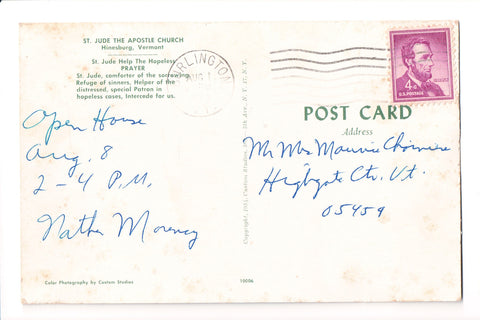 ST. JUDE THE APOSTLE CHURCH
Hinesburg, Vermont
St. Jude Help The Hopeless
PRAYER
St. Jude, comforter of the sorrowing,
Refuge of sinners, Helper of the
distressed, special Patron in
hopeless cases, Intercede for us.
RLINGTON
AUG
4¢
U.S. POSTAGE
POST CARD
Address
Open House
Aug. 8
2-4 P.M.
Mr Mrs Maurice
Highgate Ctr. Vt.
05459
Copyright, Custom Studios
Color Photography by Custom Studios
10006